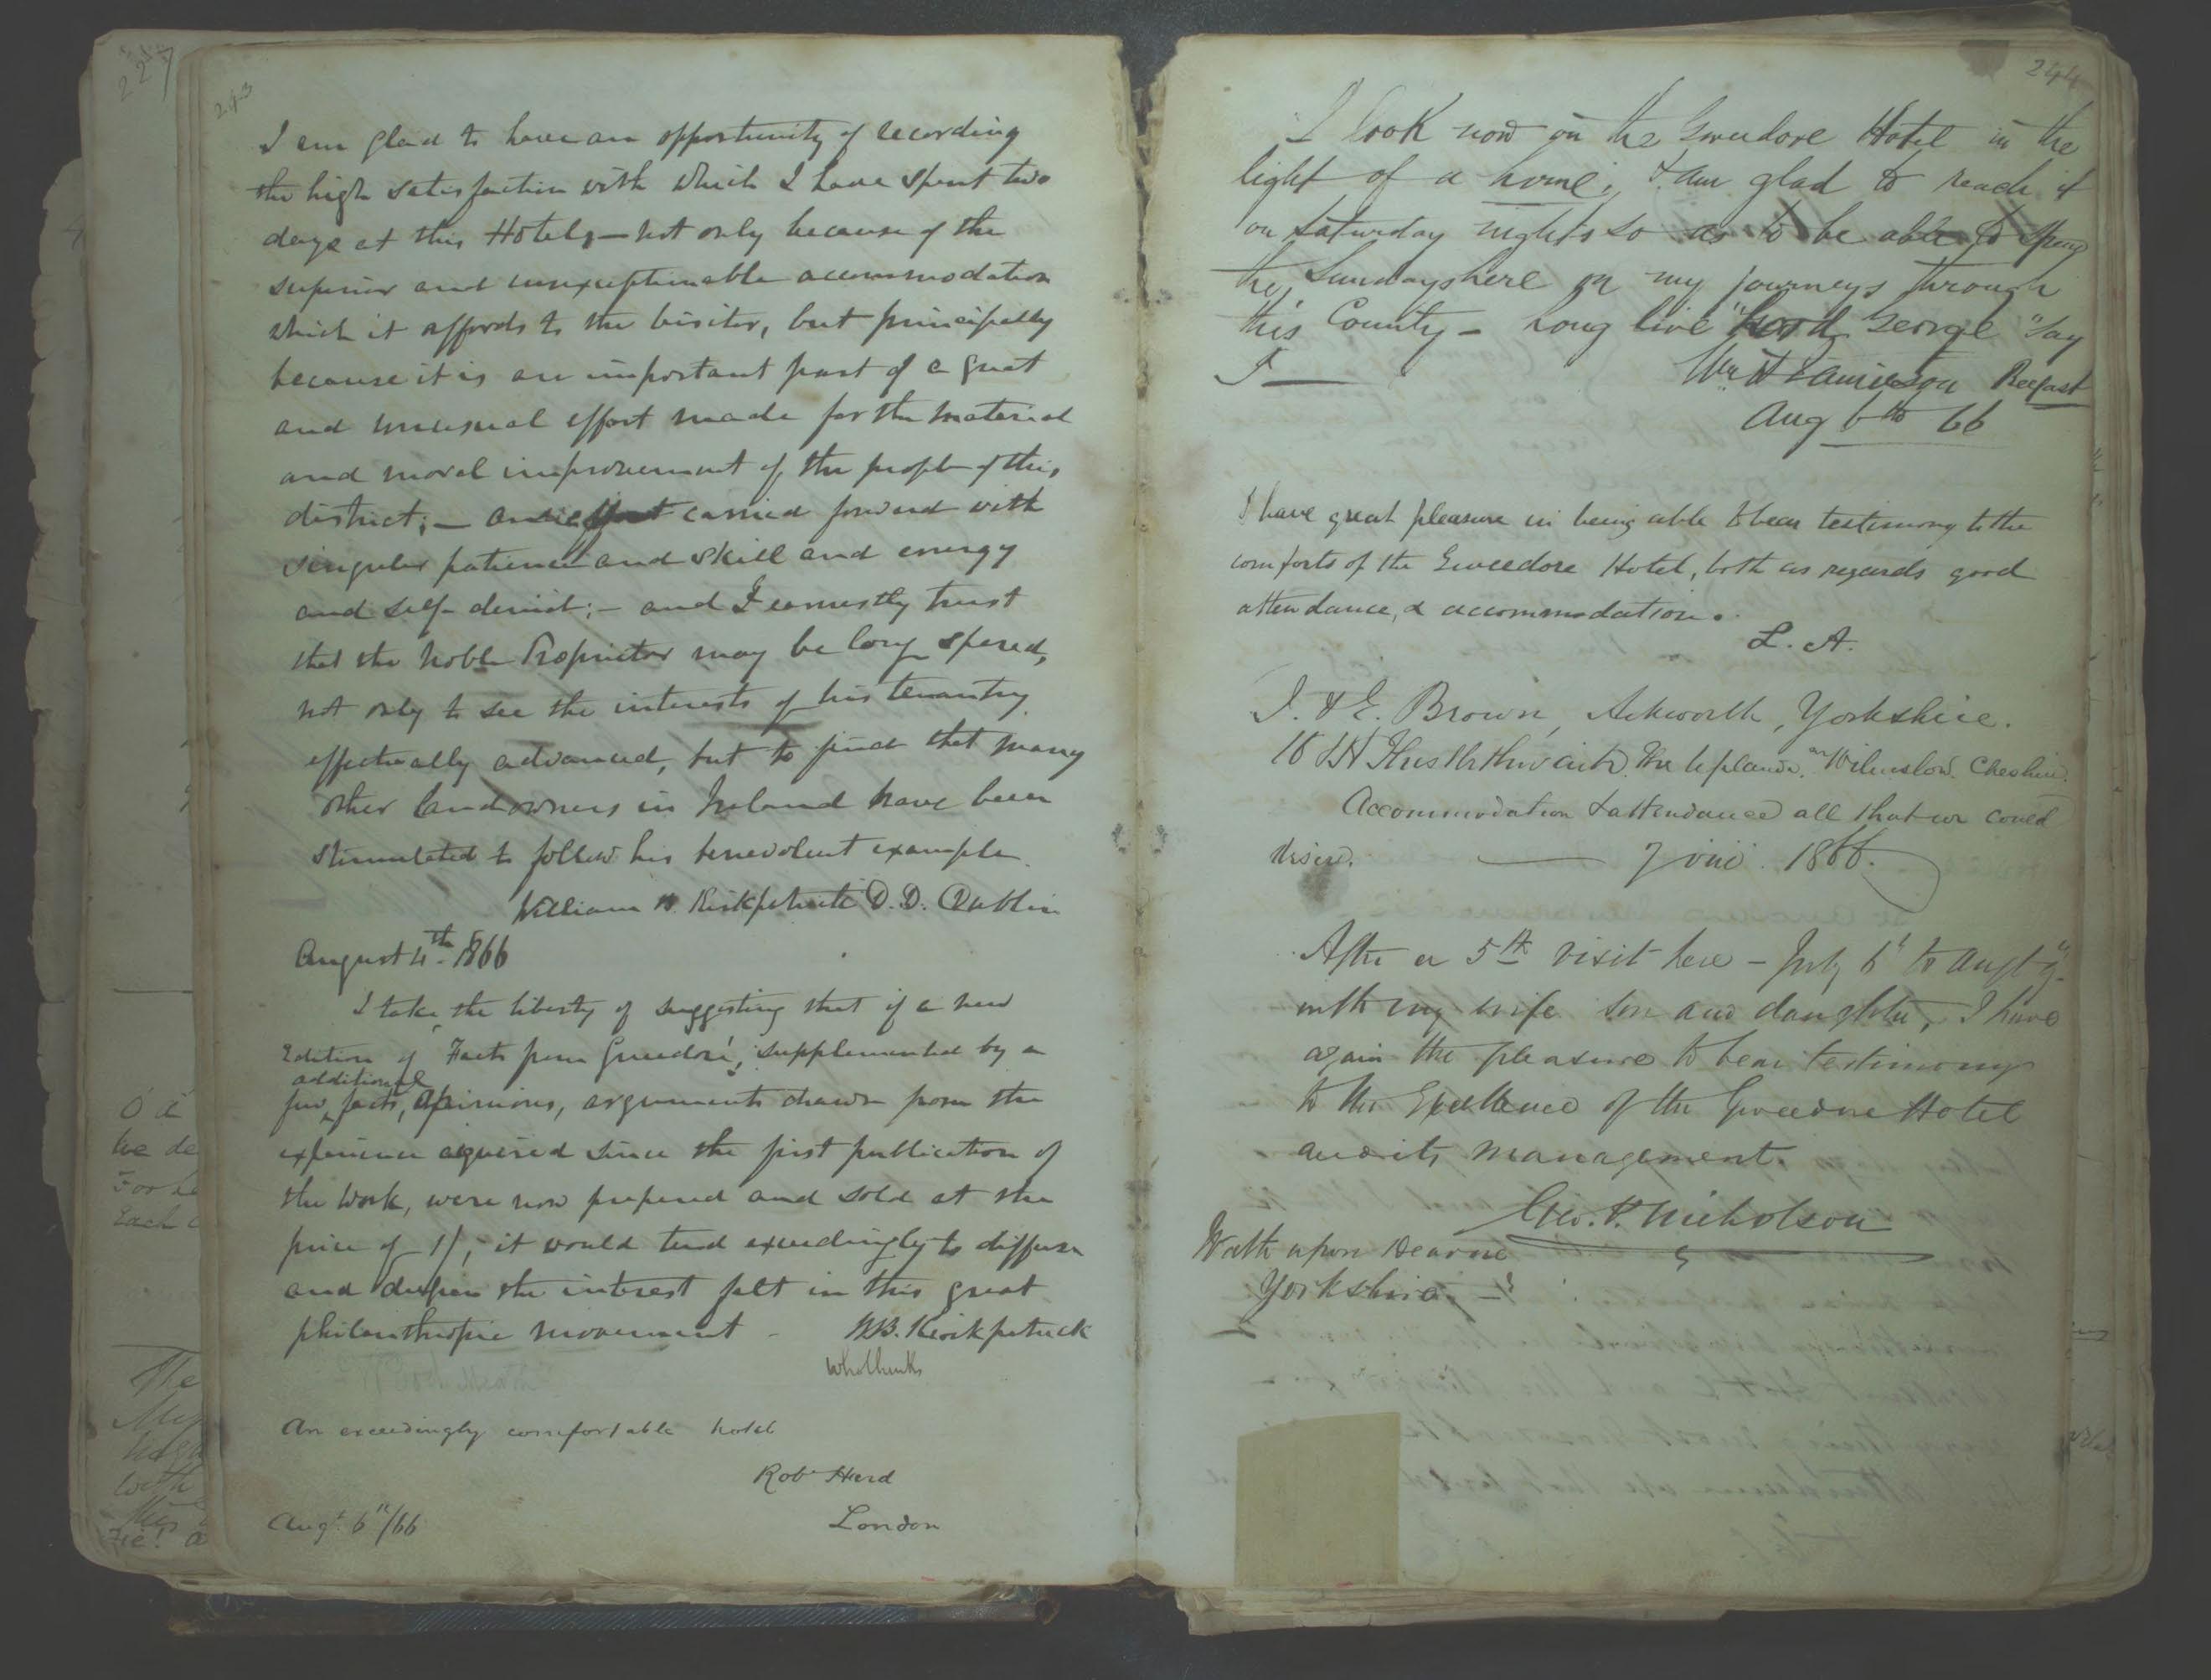 243
I am glad to have an opportunity of recording
the high satisfaction with which I have spent two
days at this Hotel, — not only because of the
superior and unexceptionable accommodation
which it affords to the visitor, but principally
because it is an important part of a great
and unusual effort made for the material
and moral improvement of the people of this,
district; — an effort carried forward with
singular patience and skill and energy
and self-denial; — and I earnestly trust
that the noble Proprietor may be long spared,
not only to see the interests of his tenantry
effectually advanced, but to find that many
other landowners in Ireland have been
stimulated to follow his benevolent example.
William B. Kirkpatrick D.D. Dublin
August 4th 1866
I take the liberty of suggesting that if a new
Edition of "Facts from Gweedore", supplemented by a
few additional facts, opinions, arguments drawn from the
experience acquired since the first publication of
the work, were now prepared and sold at the
price of 1/, it would tend exceedingly to diffuse
and deepen the interest felt in this great
philanthropic movement - W.B. Kirkpatrick
who thinks
An exceedingly comfortable hotel
Robt Herd
Augt. 6"/66 London
244
I look now on the Gweedore Hotel in the
light of a home, & am glad to reach it
on Saturday nights so as to be able to spend
the Sundays here on my journeys through
this County — Long live "Lord George" say
I —
Wm H Jamieson Belfast
Aug 6th 66
I have great pleasure in being able to bear testimony to the
comforts of the Gweedore Hotel, both as regards good
attendance, & accommodation.
L. A.
J. & E. Brown, Ackworth, Yorkshire.
Wilmslow. Cheshire.
Accommodation & attendance all that we could
desire. — 7 viii 1866.
After a 5th visit here — July 6" to Augt 7"
with my wife son and daughter, I have
again the pleasure to bear testimony
to the Excellence of the Gweedore Hotel
and its management.
Geo. P. Nicholson
Wath upon Dearne
Yorkshire —